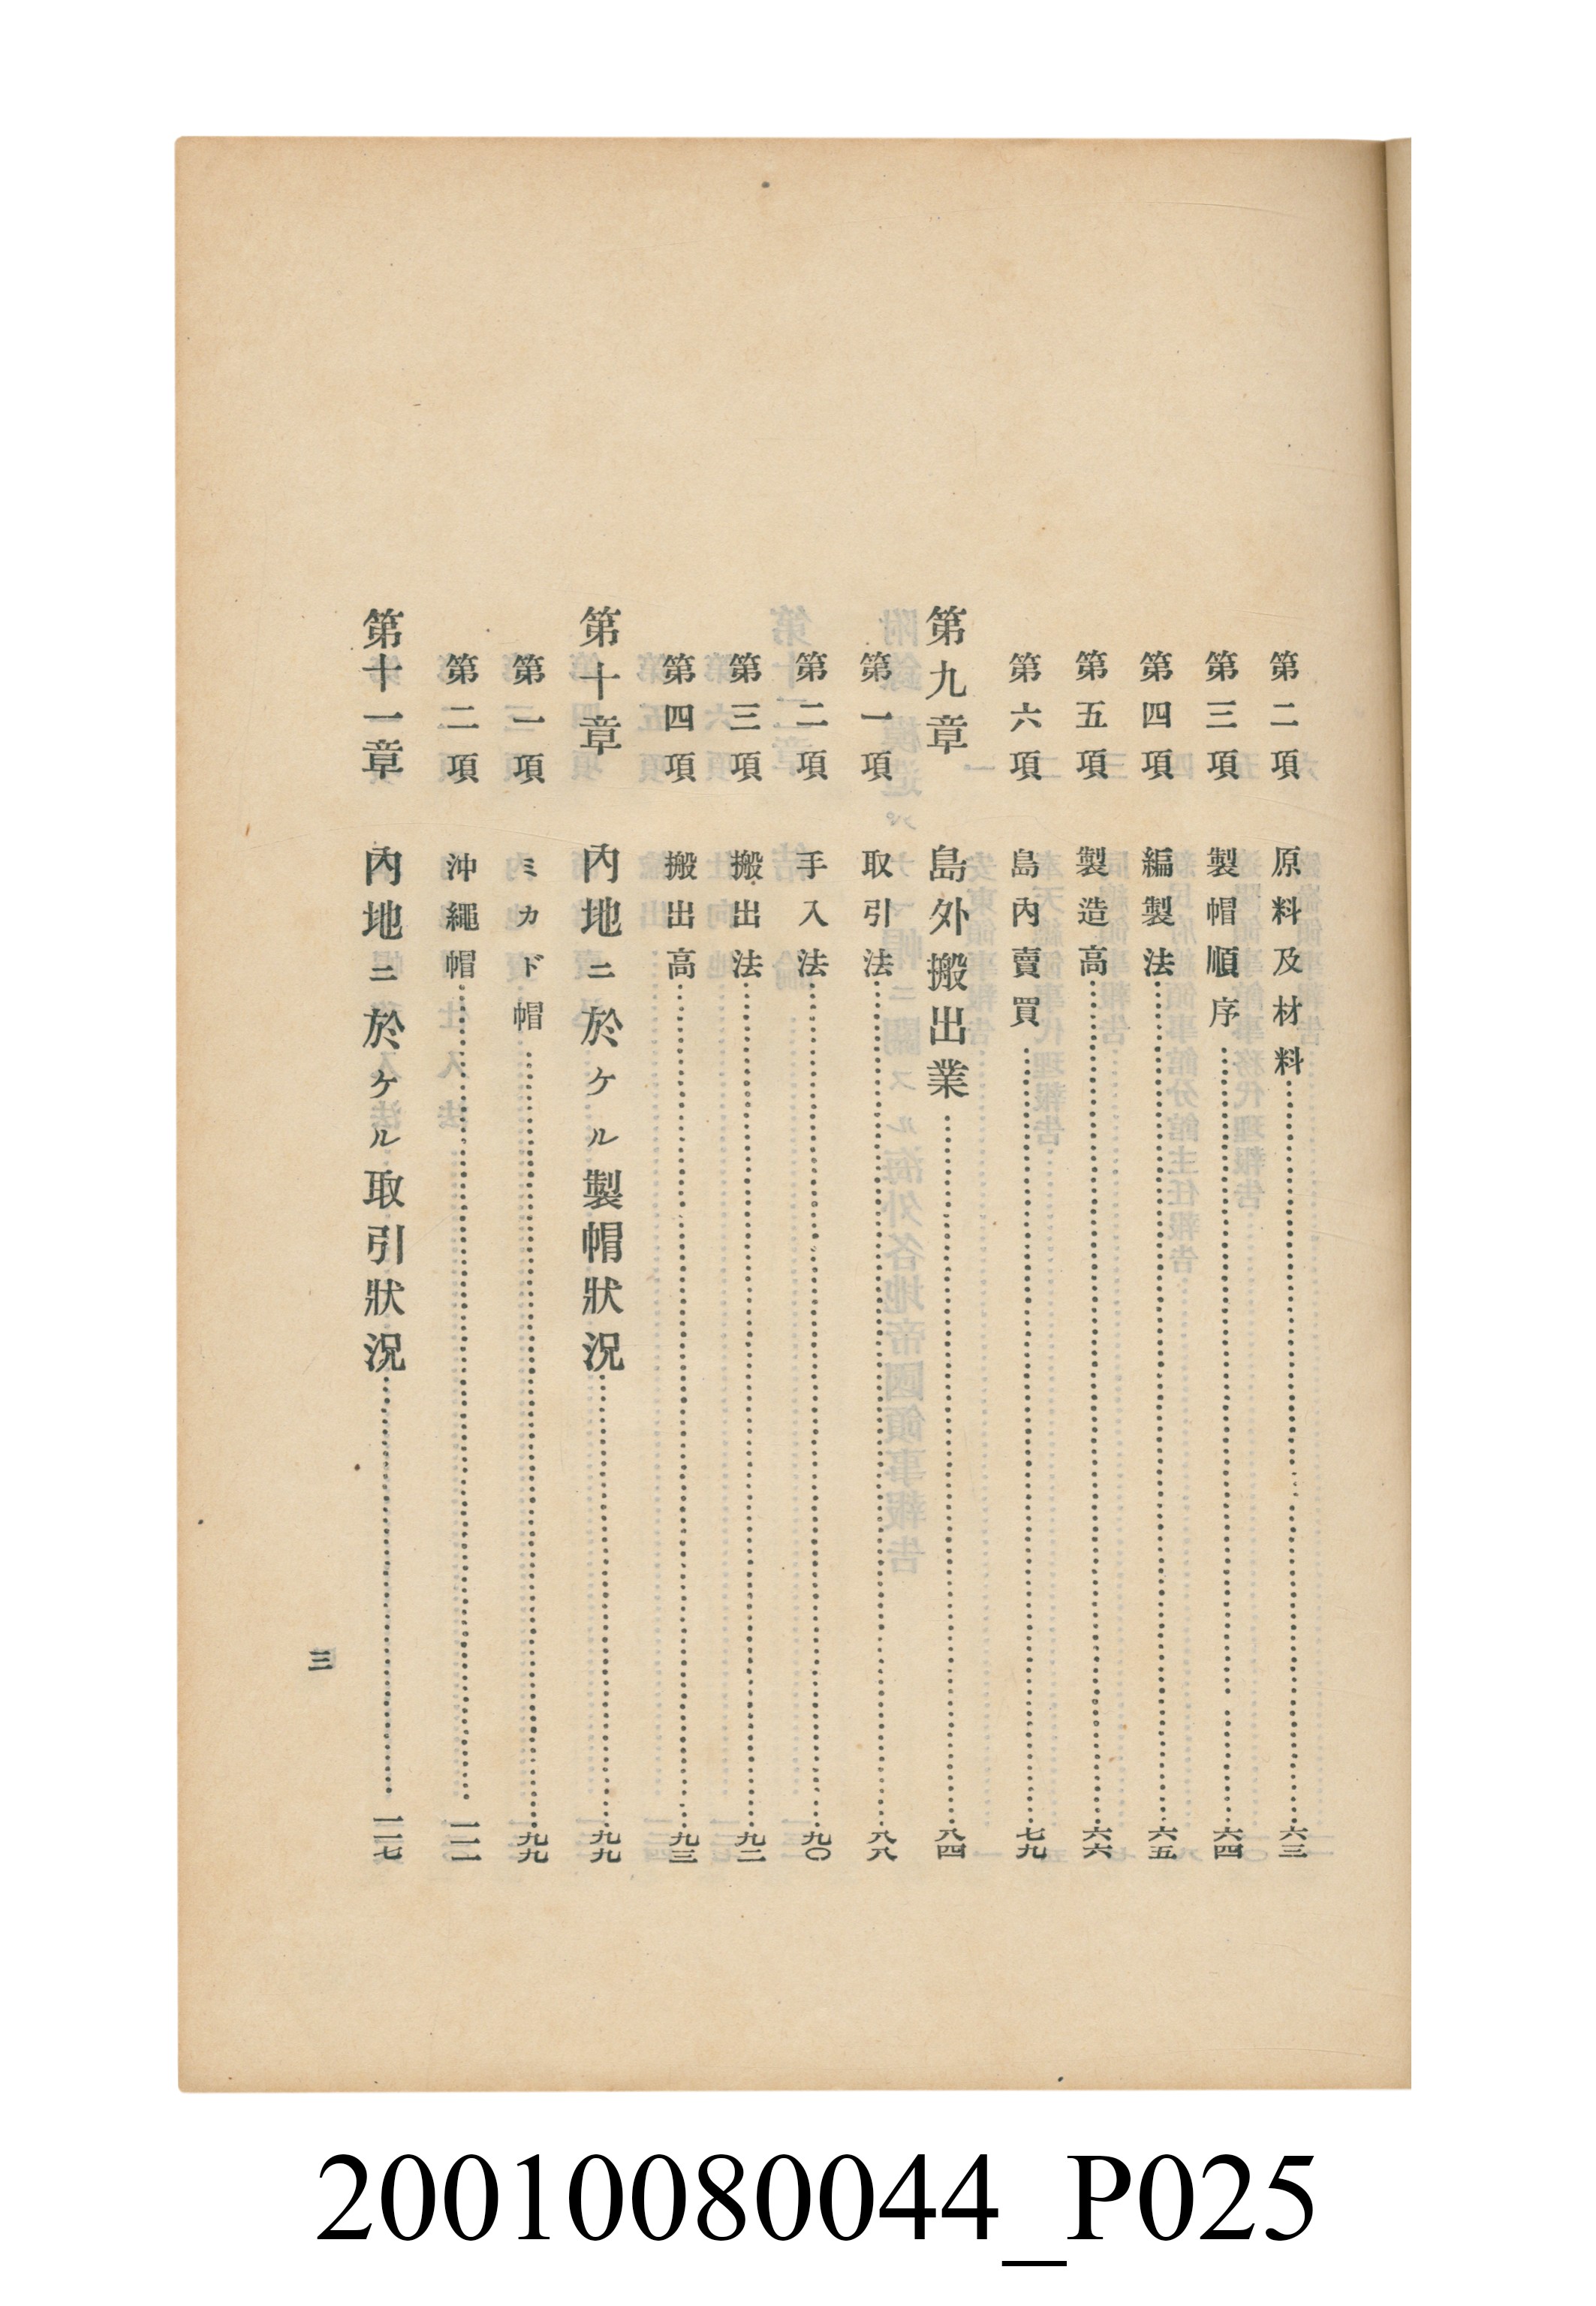 第二項　原料及材料……六三
第三項　製帽順序……六四
第四項　編製法……六五
第五項　製造高……六六
第六項　島內賣買……七九
第九章　島外搬出業……八四
第一項　取引法……八八
第二項　手入法……九〇
第三項　搬出法……九二
第四項　搬出高……九三
第十章　內地ニ於ケル製帽狀況……九九
第一項　ミカド帽……九九
第二項　沖繩帽……一一一
第十一章　內地ニ於ケル取引狀況……一一七
三
20010080044_P025